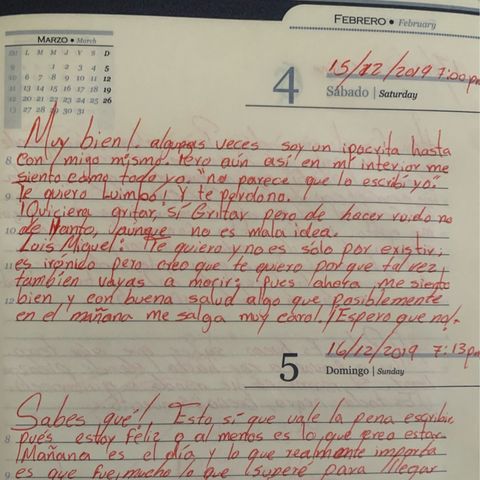 FEBRERO • February
MARZO • March
D L M M J V S D
9 1 2 3 4 5
10 6 7 8 9 10 11 12
11 13 14 15 16 17 18 19
12 20 21 22 23 24 25 26
13 27 28 29 30 31
4
Sábado | Saturday
15/12/2019 7:00 pm
Muy bien! algunas veces soy un ipocrita hasta
8 con / migo mismo. Pero aún así en mi interior me
siento como todo yo. "no parece que lo escribí yo".
9 Te quiero Luimbo! Y te perdono.
¡Quiciera gritar, sí Gritar pero de hacer ruido no
10 de Manto, aunque no es mala idea.
Luis Miguel: Te quiero y no es solo por existir,
11 es irónido pero creo que te quiero porque tal vez
también vayas a morir; pues ahora me siento
12 bien y con buena salud algo que posiblemente
en el mañana me salga muy caro! ¡Espero que no!.
5
Domingo | Sunday
16/12/2019 7:13pm
Sabes qué!, Esto sí que vale la pena escribir,
8 pués estoy Feliz o al menos es lo que creo estar.
Mañana es el día y lo que realmente importa
9 es que fue mucho lo que superé para llegar